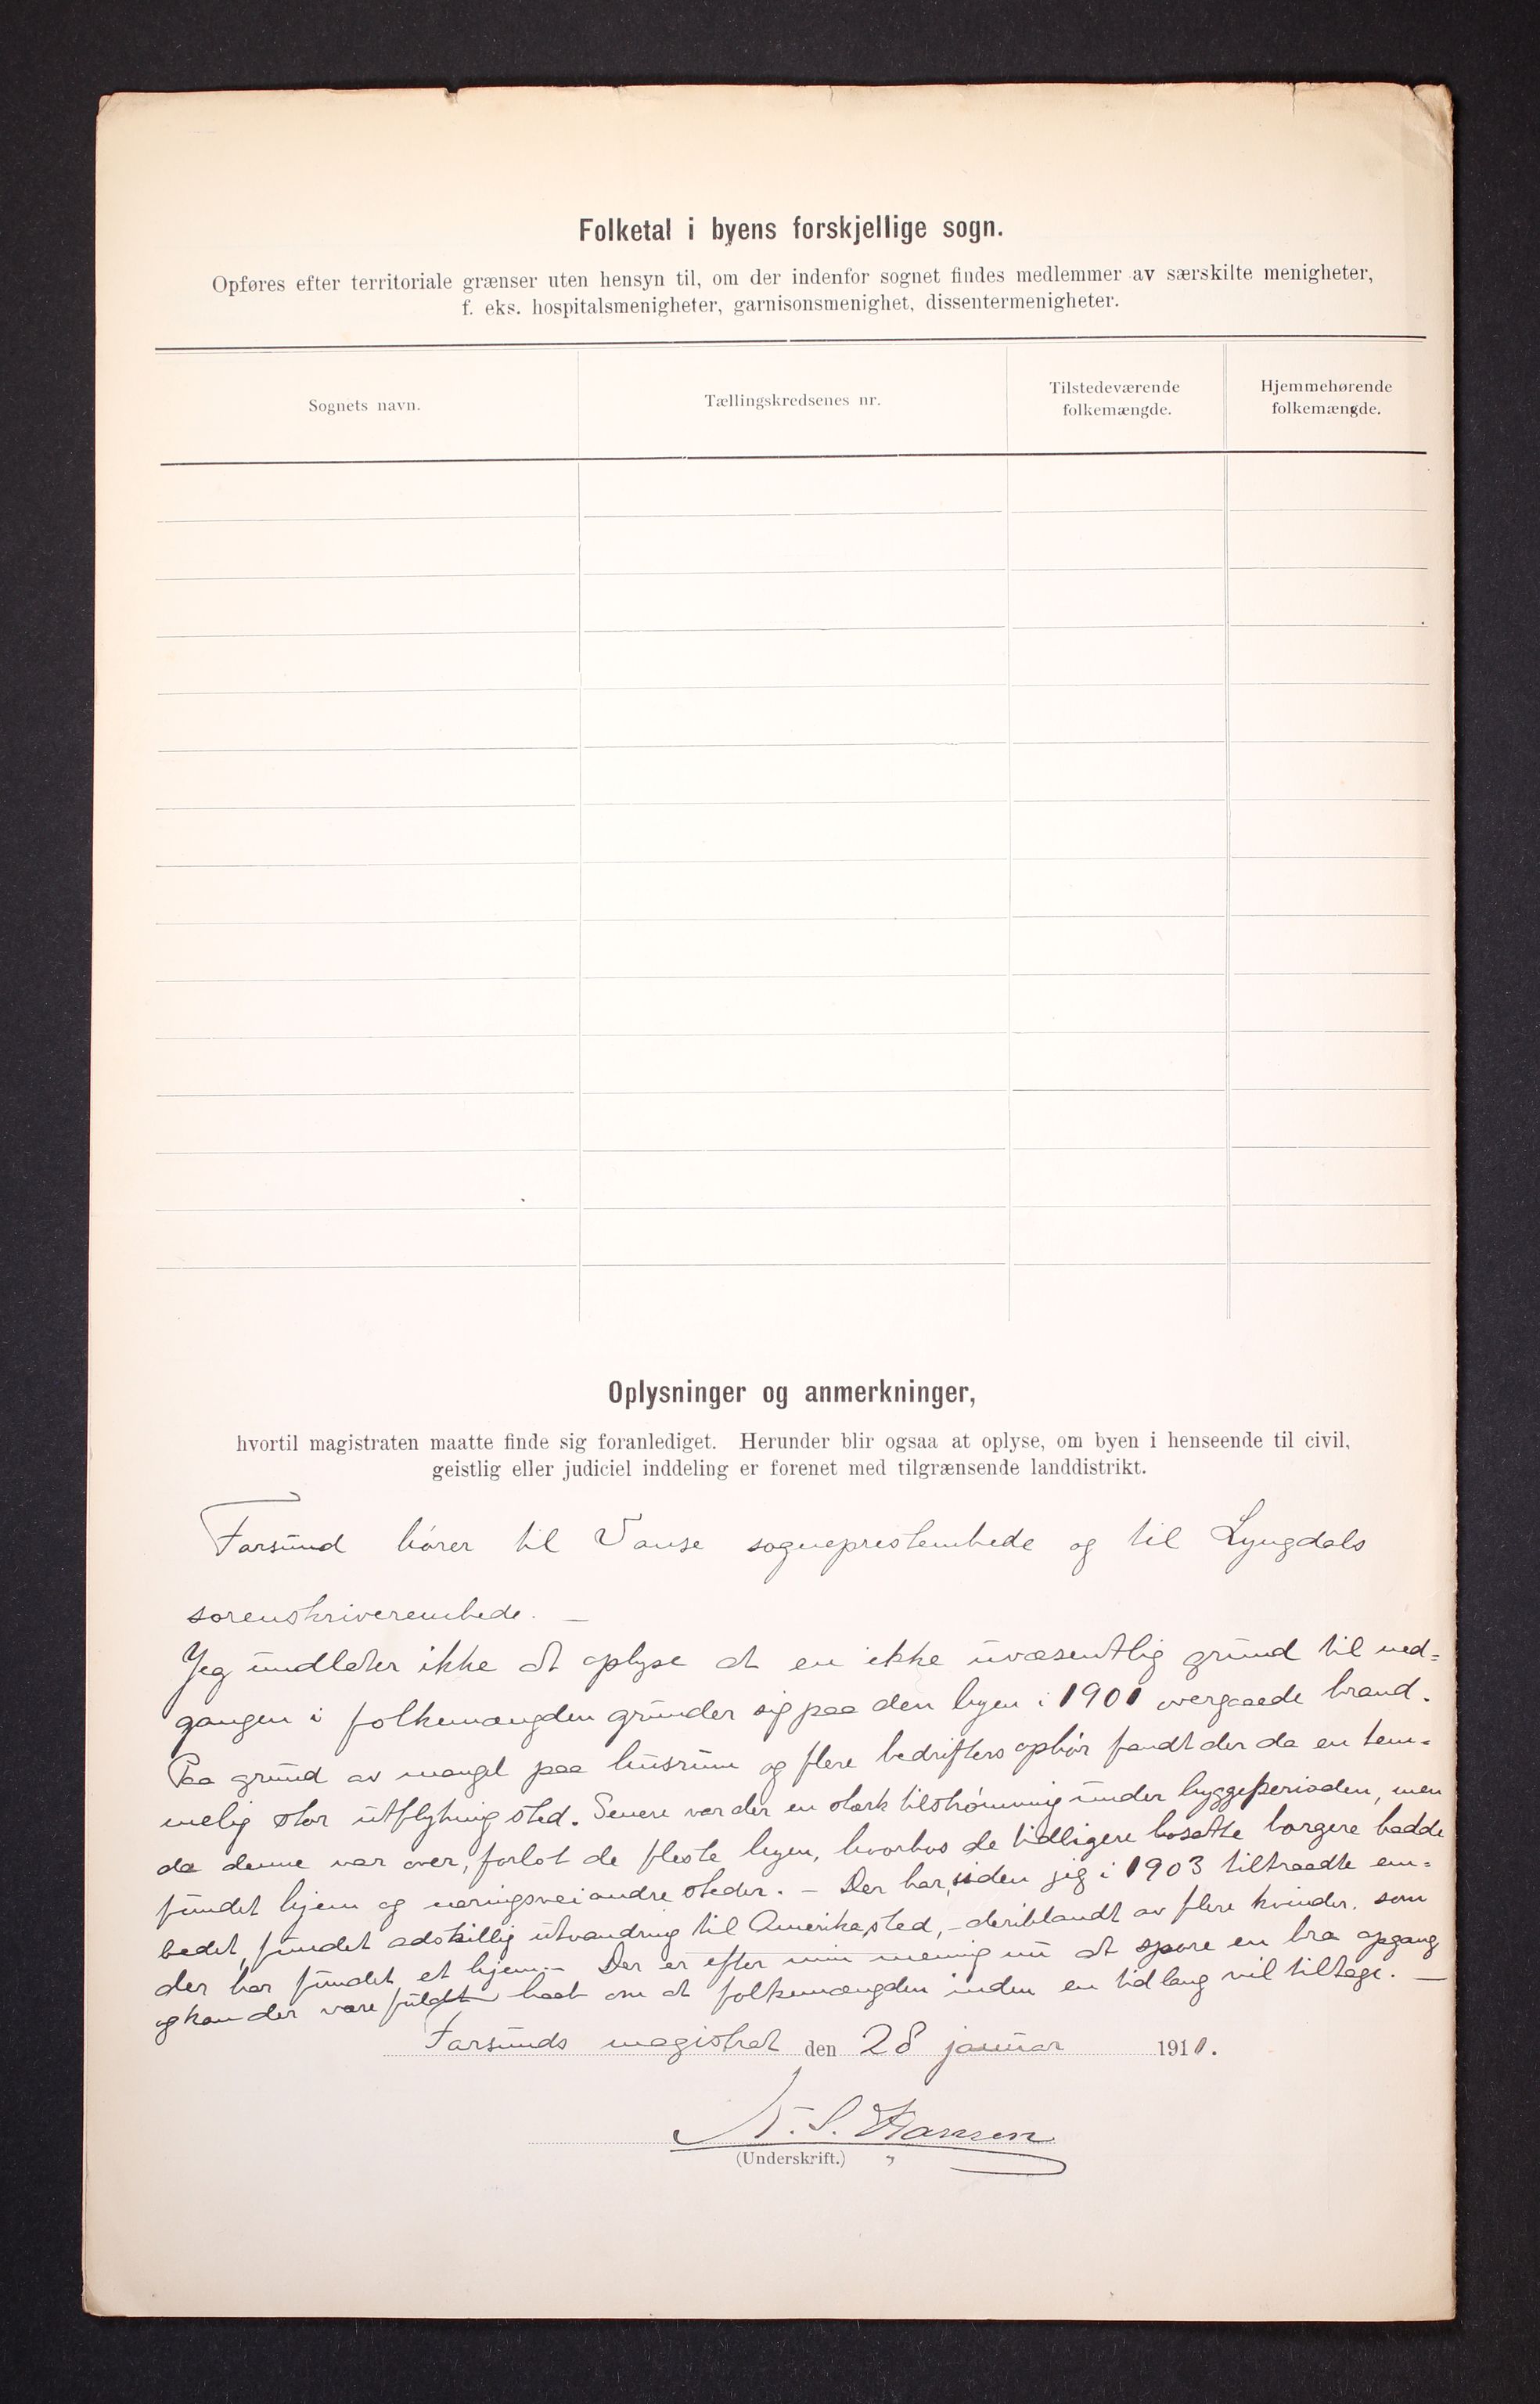 Folketal i byens forskjellige sogn.
Opføres efter territoriale grænser uten hensyn til, om der indenfor sognet findes medlemmer av særskilte menigheter,
f. eks. hospitalsmenigheter, garnisonsmenighet, dissentermenigheter.
Sognets navn.
Tællingskredsenes nr.
Tilstedeværende
folkemængde.
Hjemmehørende
folkemængde.
Oplysninger og anmerkninger,
hvortil magistraten maatte finde sig foranlediget. Herunder blir ogsaa at oplyse, om byen i henseende til civil,
geistlig eller judiciel inddeling er forenet med tilgrænsende landdistrikt.
Farsund hører til Vanse sogneprestembede og til Lyngdals
sorenskriverembede. —
Jeg undlater ikke at oplyse at en ikke uvæsentlig grund til ned=
gangen i folkemængden grunder sig paa den byen i 1901 overgaaede brand.
Paa grund av mangel paa husrum og flere bedrifters ophør fandt der da en tem=
melig stor utflytning sted. Senere var der en stærk tilstrømning under byggeperioden, men
da denne var over, forlot de fleste byen, hvorhos de tidligere bosatte borgere hadde
fundet hjem og næringsvei andre steder. – Der har, siden jeg i 1903 tiltraadte em=
bedet, fundet adskillig utvandring til Amerika sted, – deriblandt av flere kvinder, som
der har fundet et hjem. – Der er efter min mening nu at spore en bra opgang
og kan der være fuldt haab om at folkemængden inden en tid lang vil tiltage. —
Farsunds magistrat den 28 januar 1911.
N. S. Hansen
(Underskrift.)